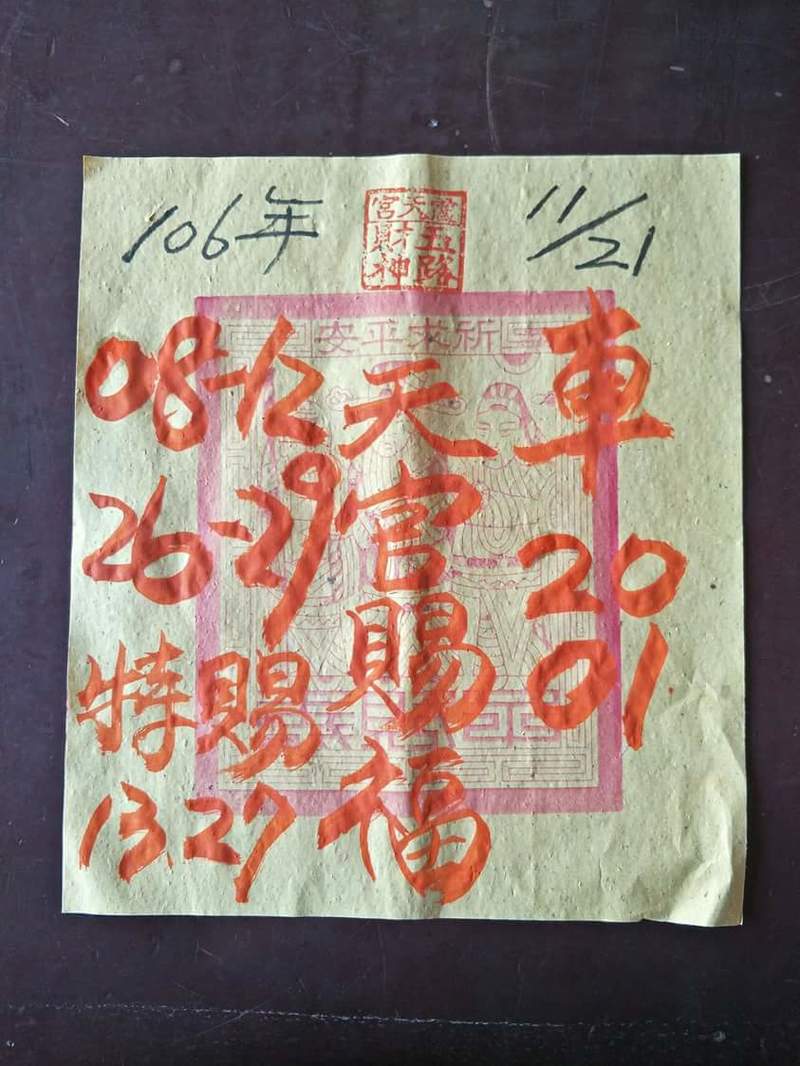 106年 11/21
靈天宮
五路
財神
祈求平安
車
20
01
天官賜福
08-12
26-29
特賜
13.27